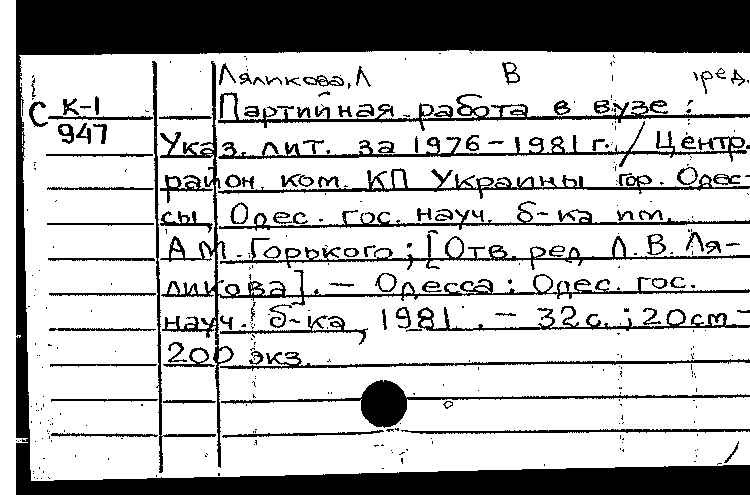 Ляликова, Л В ред.
С К-1 Партийная работа в вузе :
947 Указ. лит. за 1976-1981 г. / Центр.
район. ком. КП Украины гор. Одес-
сы, Одес. гос. науч. б-ка им.
А.М. Горького ; [Отв. ред. Л.В. Ля-
ликова]. — Одесса : Одес. гос.
науч. б-ка, 1981. — 32с. ; 20cm —
200 экз.